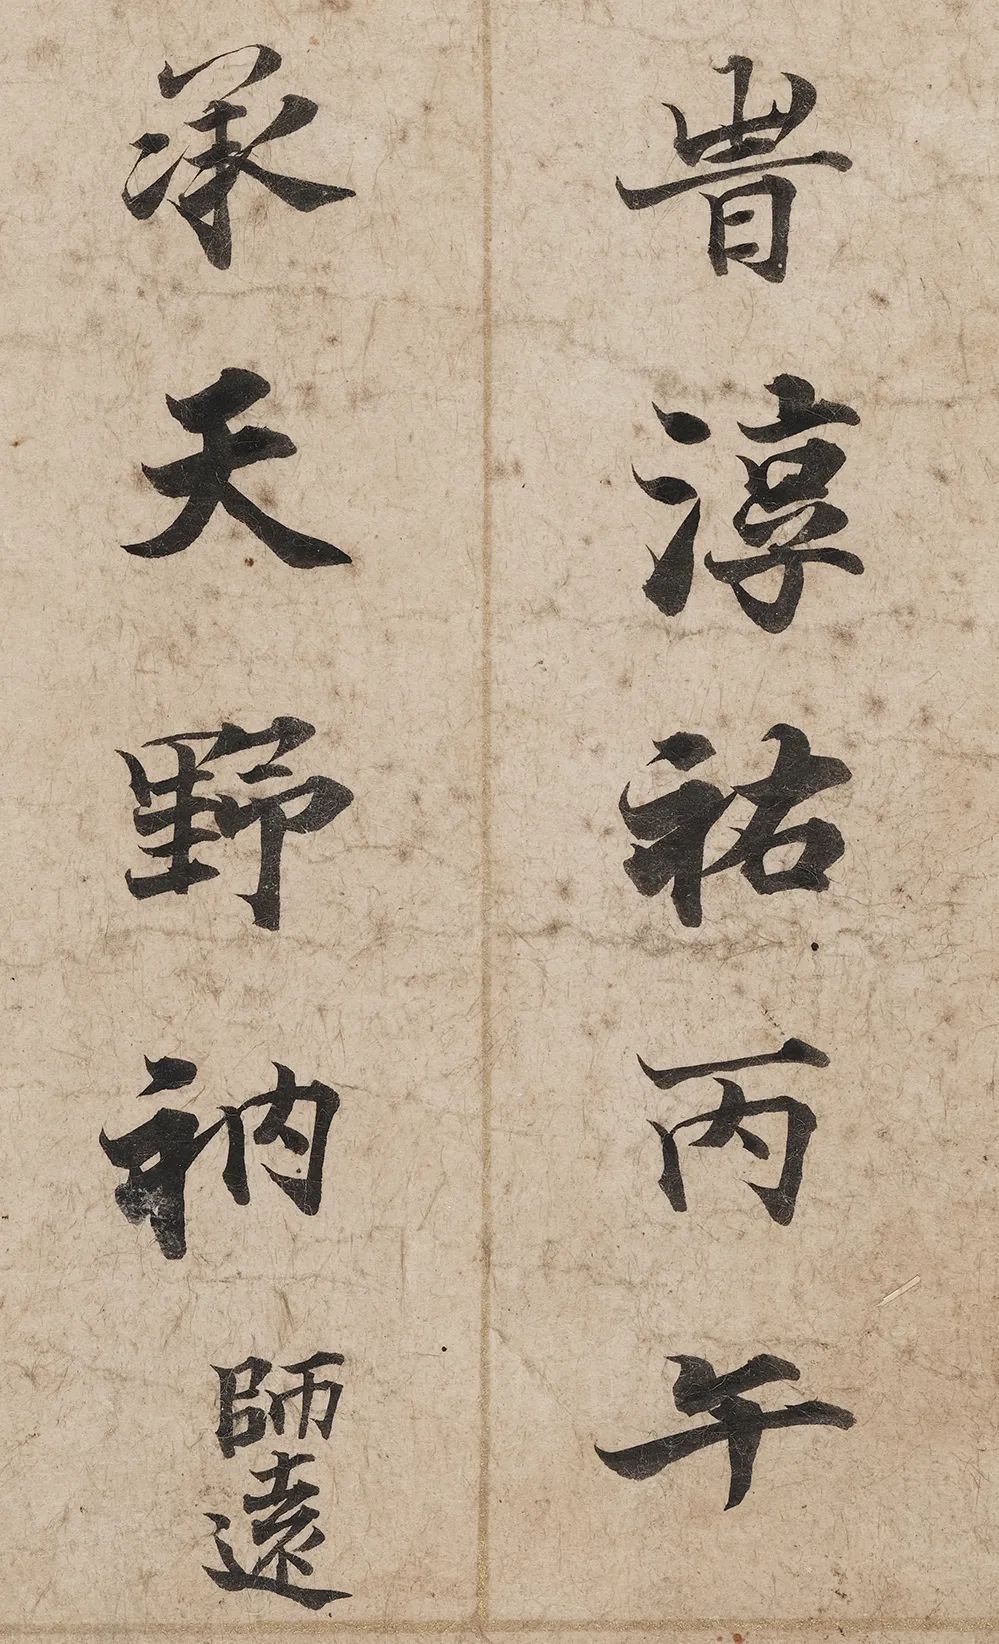 旹淳祐丙午
承天野衲師遠